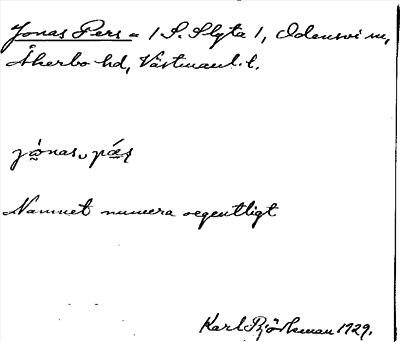 Jonas Pers = / S. Slyta /, Odensvi sn,
Åkerbo hd, Västmanl. l.
jònas, pæ̀ʂ
Namnet numera oegentligt
Karl Björkman 1929.